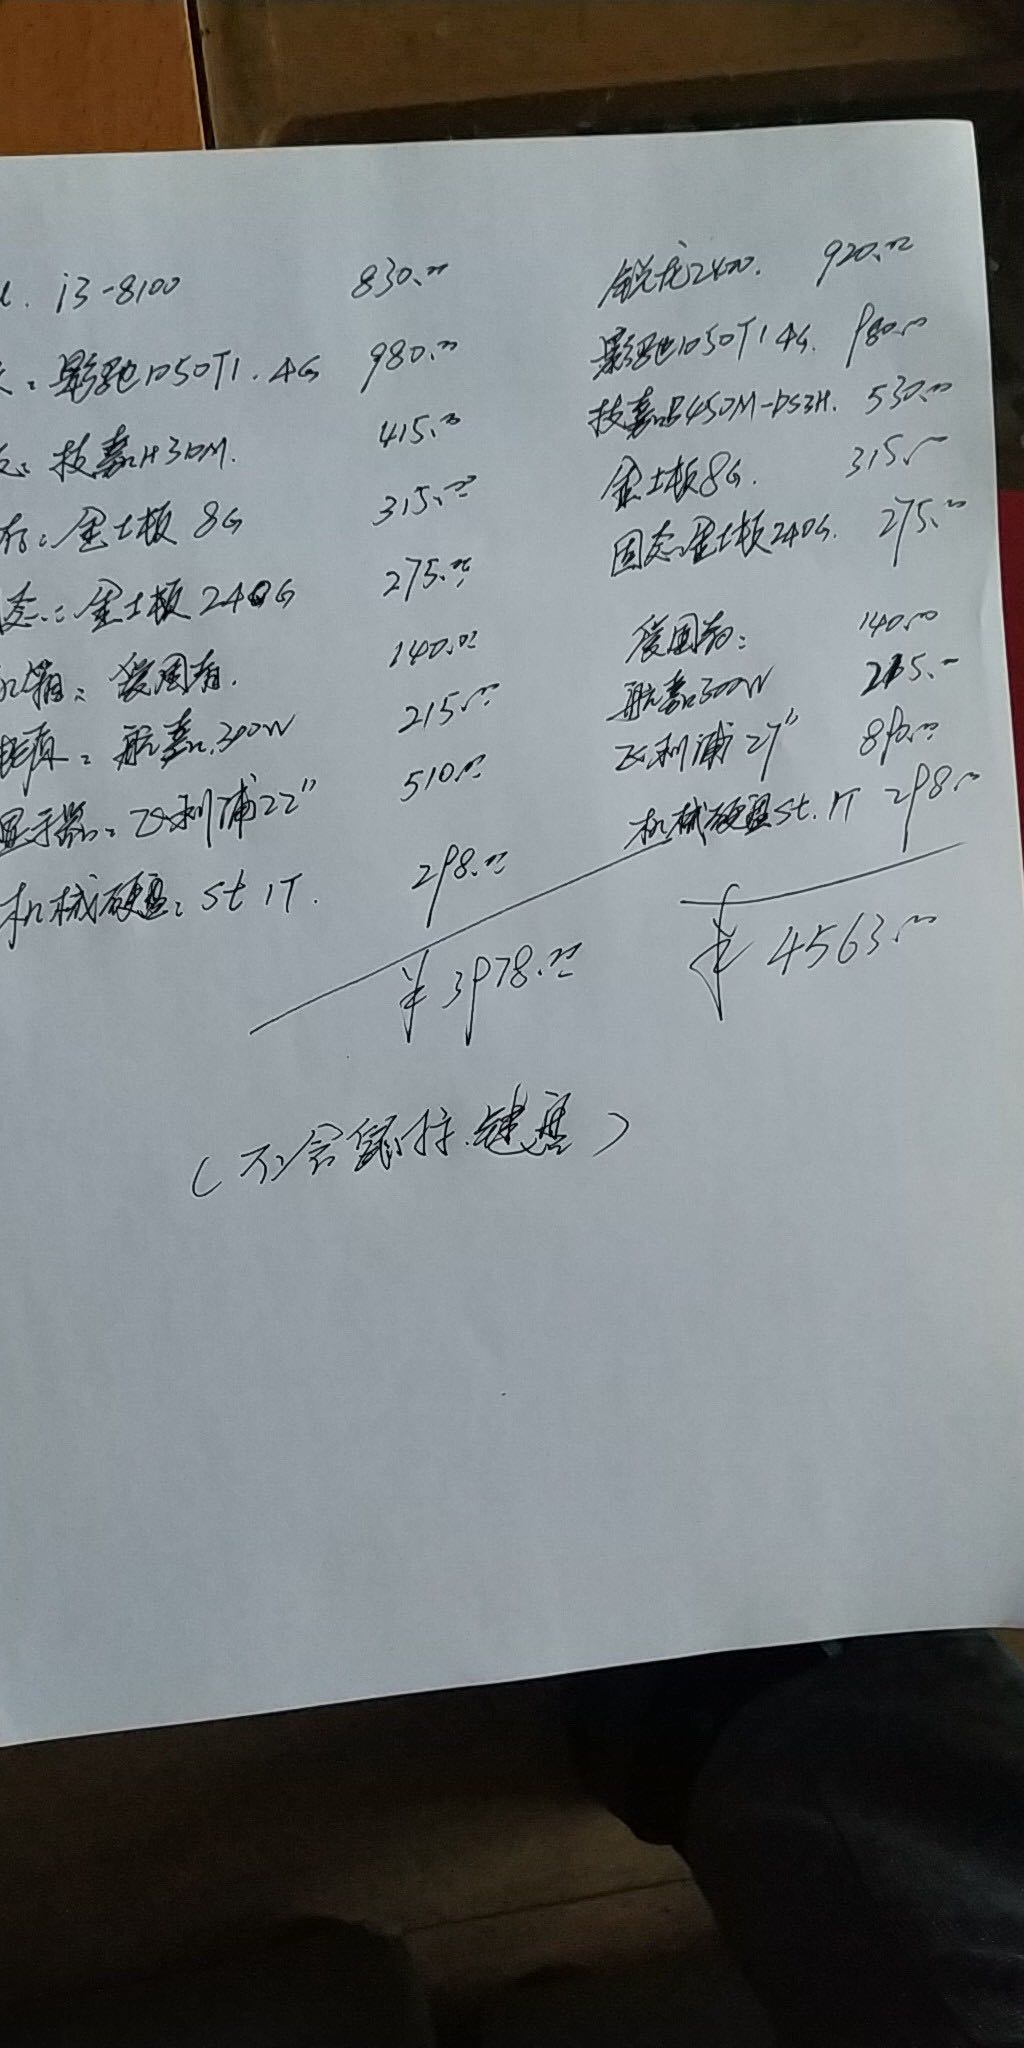 i3-8100 830.00 锐龙2400. 920.00
影驰1050TI.4G 980.00 影驰1050TI 4G. 980.00
技嘉H310M. 415.00 技嘉B450M-DS3H. 530.00
存:金士板 8G 315.00 金士板8G. 315.00
态:金士板 240G 275.00 固态:金士板240G. 275.00
机箱:爱国者. 140.00 爱国者: 140.00
电源:航嘉.300W 215.00 航嘉300W 215.00
显示器:飞利浦22" 510.00 飞利浦27" 890.00
机械硬盘:St 1T. 298.00 机械硬盘St.1T 298.00
¥3978.00 ¥4563.00
(不含鼠标.键盘)